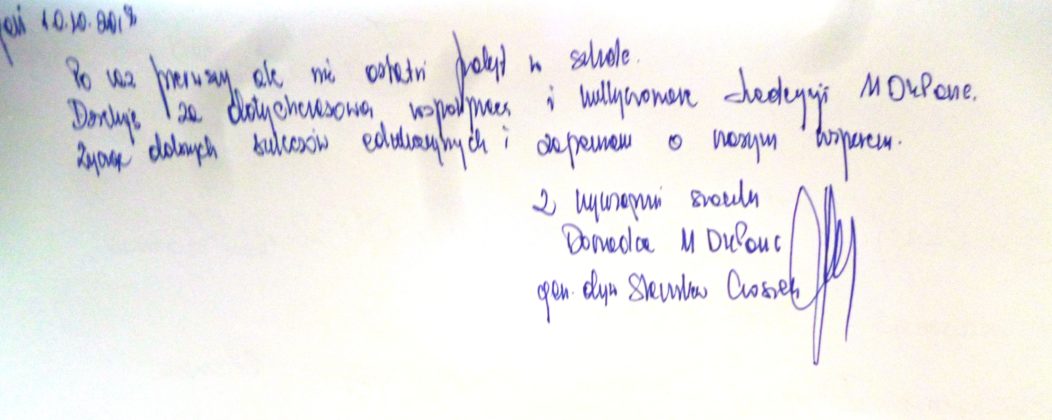 10.10.201
Po raz pierwszy ale nie ostatni pobyt w szkole.
Dziękuję za dotychczasową współpracę i kultywowanie tradycji 11 DKPanc.
Życzę dalszych sukcesów edukacyjnych i zapewniam o naszym wsparciu.
Z wyrazami szacunku
Dowódca 11 DKPanc
gen. dyw Stanisław Czosnek